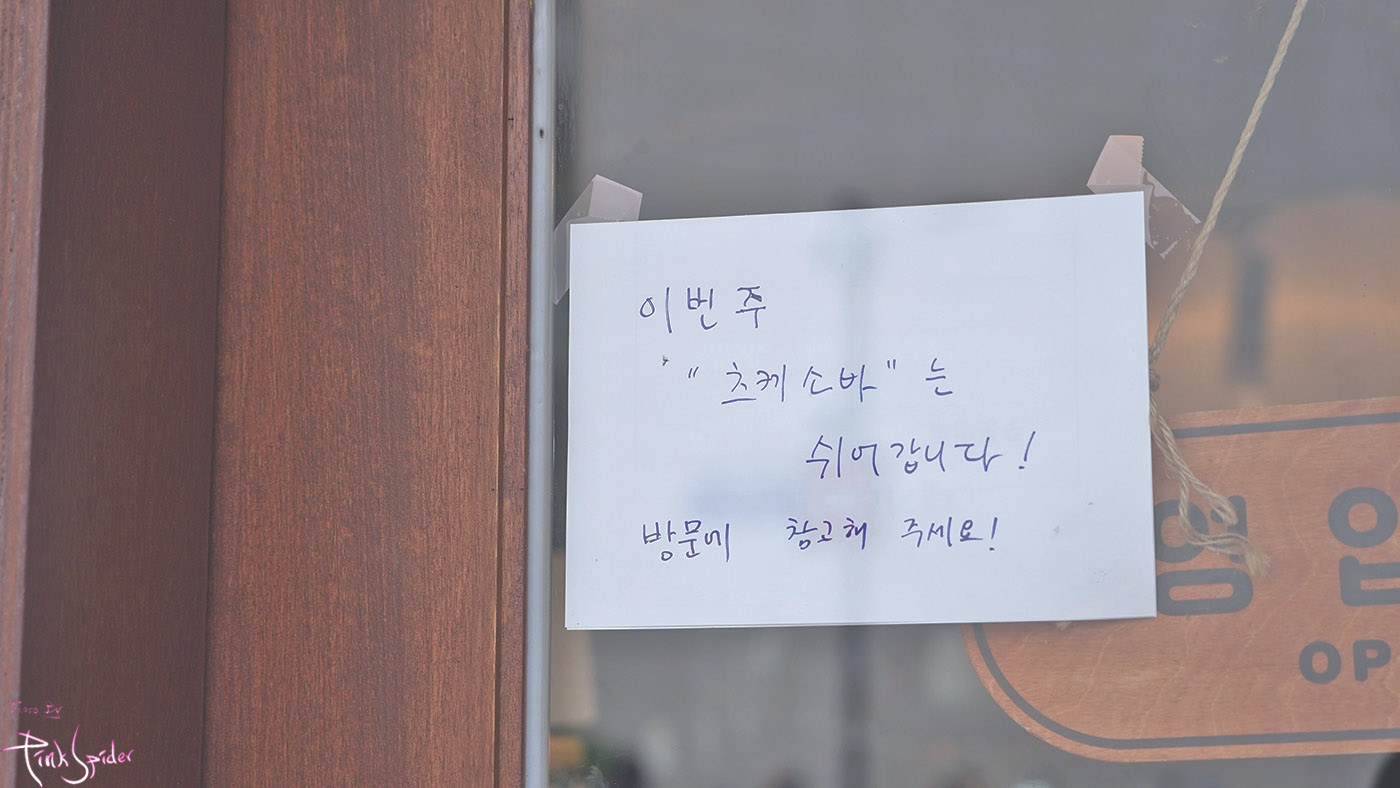 이번주
"츠케소바"는
쉬어갑니다!
방문에 참고해 주세요!
영업
OP
Photo By
PinkSpider